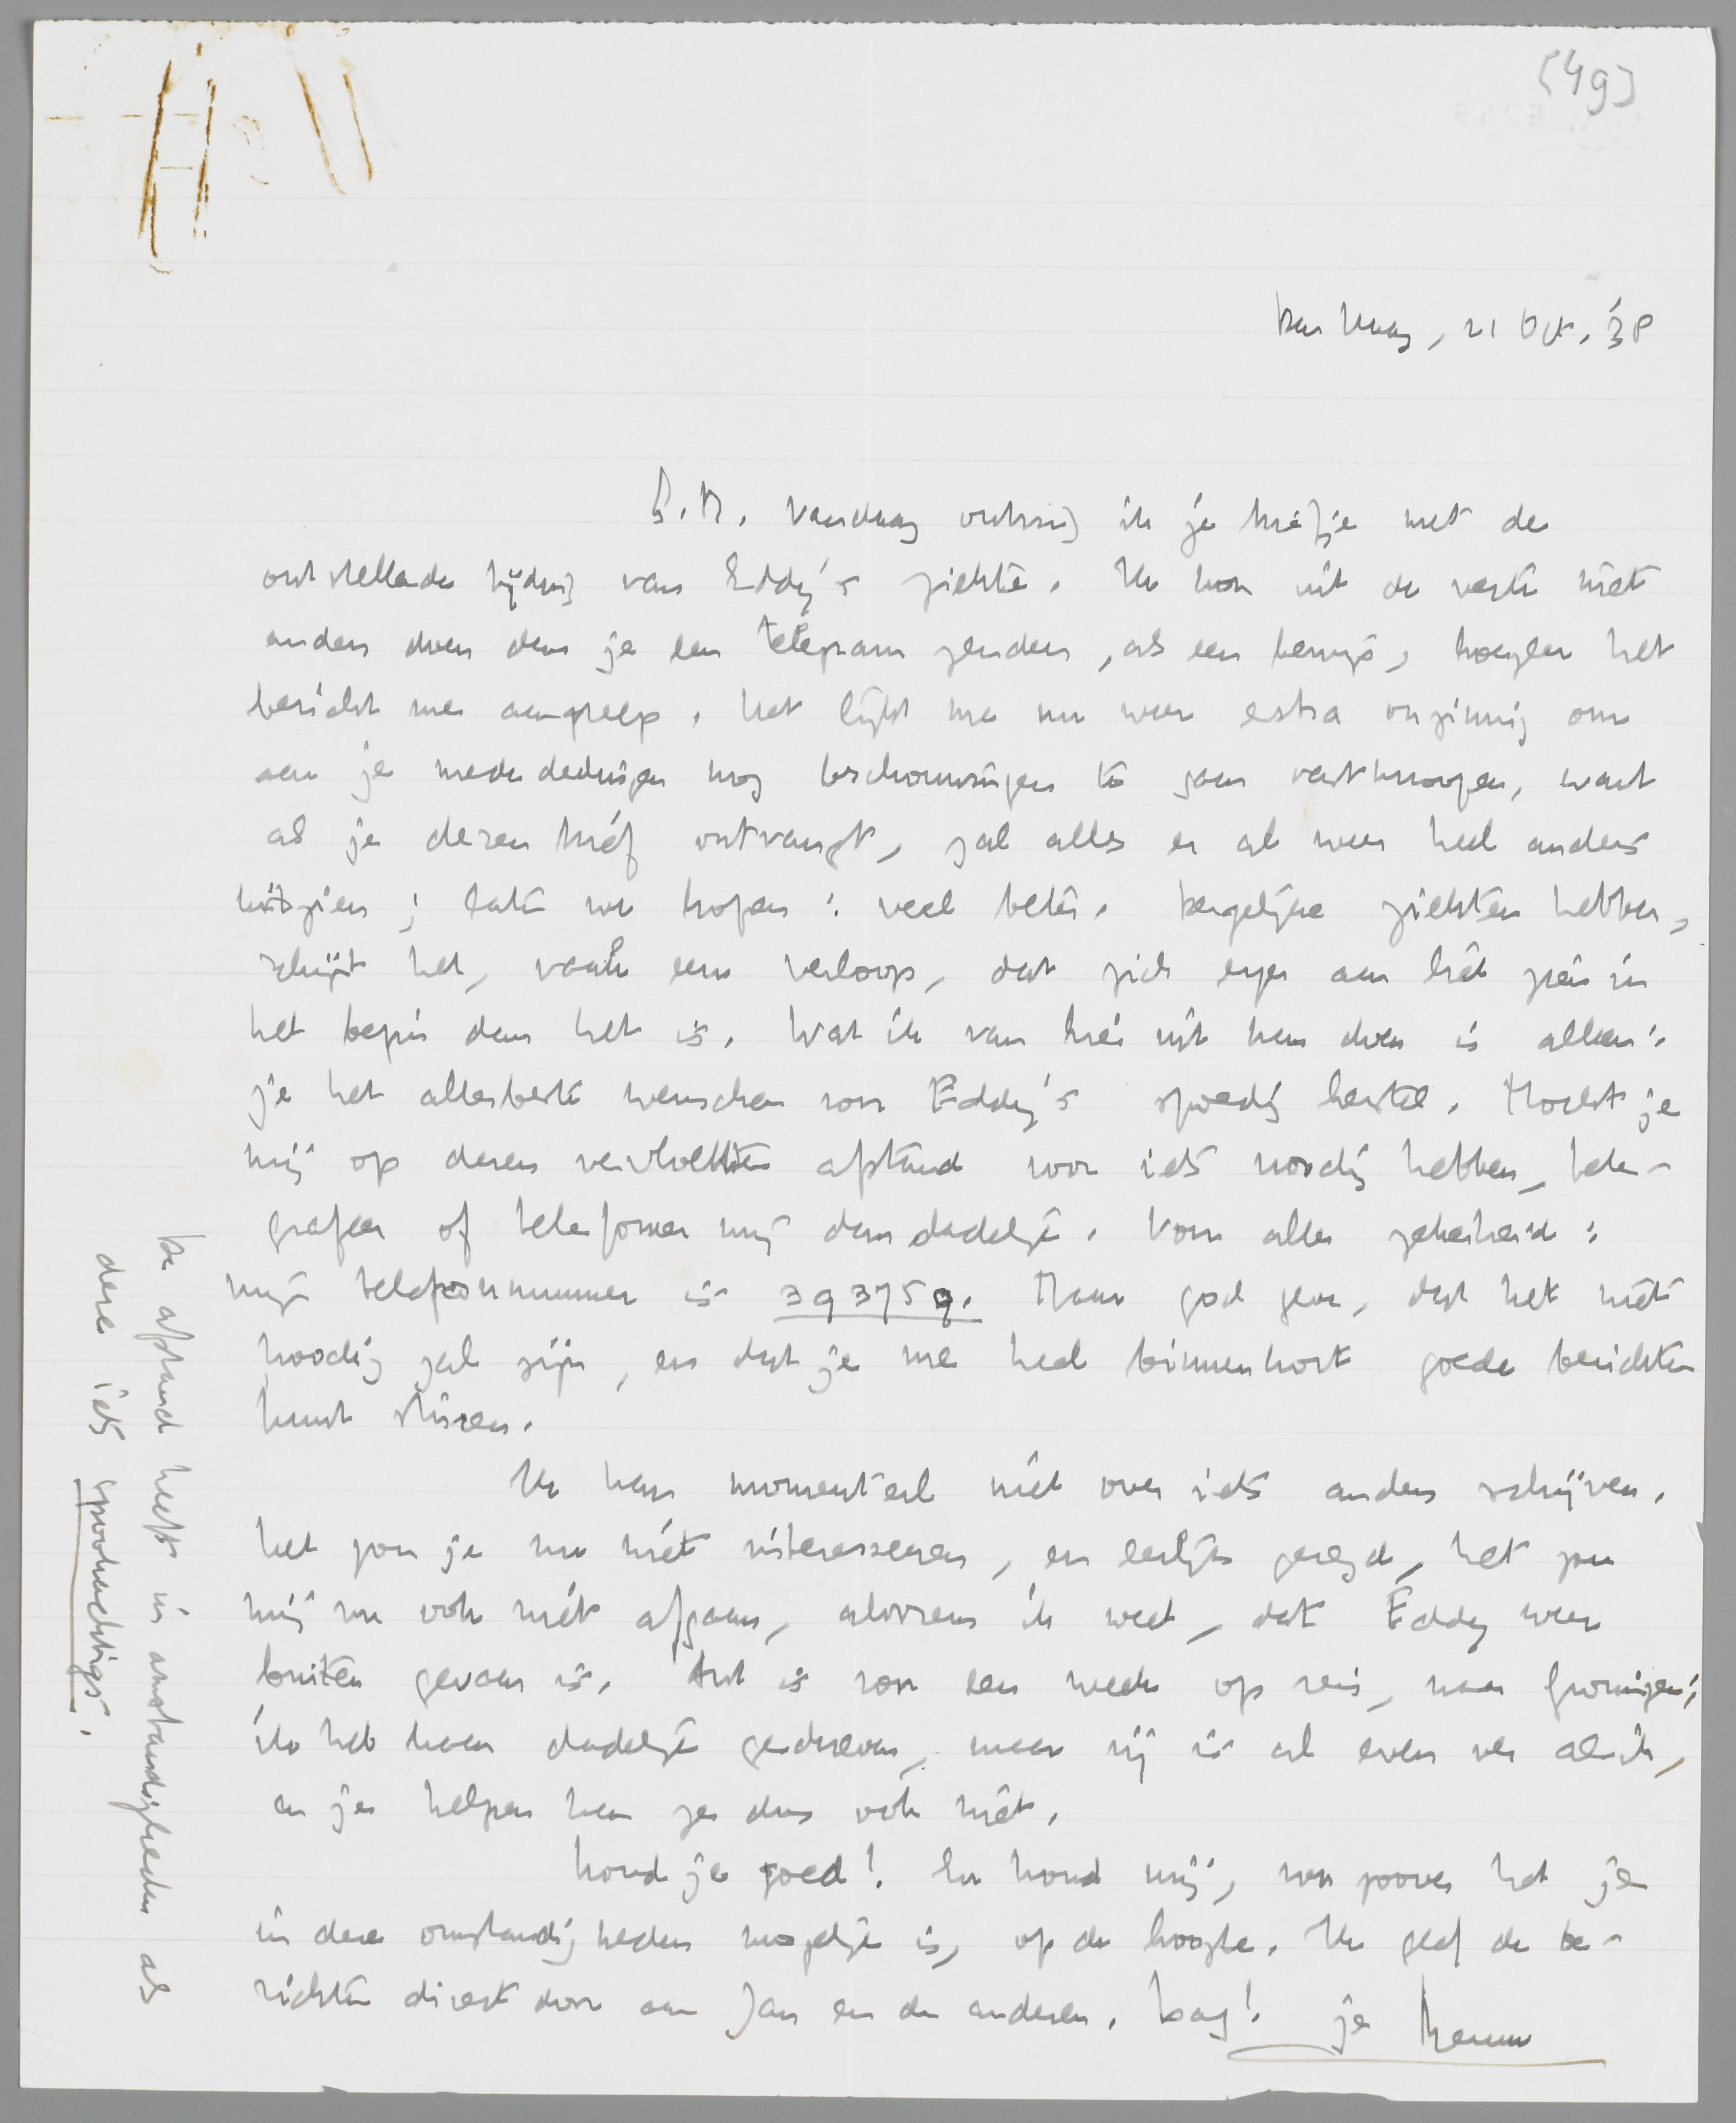 [49]
Den Haag, 21 Oct. '38
B.R. Vandaag ontving ik je briefje met de
ontstellende tijding van Eddy's ziekte. Ik kon uit de verte niet
anders doen dan je een telegram zenden, als een bewijs, hoezeer het
bericht me aangreep. Het lijkt me nu weer extra onzinnig om
aan je mededeelingen nog beschouwingen te gaan vastknoopen, want
als je dezen brief ontvangt, zal alles er al weer heel anders
uitzien; laten we hopen: veel beter. Dergelijke ziekten hebben,
schijnt het, vaak een verloop, dat zich erger aan laat zien in
het begin dan het is. Wat ik van hier uit kan doen is alleen:
je het allerbeste wenschen voor Eddy's spoedig herstel. Mocht je
mij op dezen vervloekten afstand voor iets noodig hebben, tele-
grafeer of telefoneer mij dan dadelijk. Voor alle zekerheid:
mijn telefoonnummer is 393759. Maar god geve, dat het niet
noodig zal zijn, en dat je me heel binnenkort goede berichten
kunt sturen.
Ik kan momenteel niet over iets anders schrijven.
Het zou je nu niet interesseeren, en eerlijk gezegd, het zou
mij nu ook niet afgaan, alvorens ik weet, dat Eddy weer
buiten gevaar is. Ant is voor een week op reis, naar Groningen;
ik heb haar dadelijk geschreven, maar zij is al even ver als ik,
en je helpen kan ze dus ook niet.
Houd je goed! En houd mij, voor zoover het je
in deze omstandigheden mogelijk is, op de hoogte. Ik geef de be-
richten direct door aan Jan en de anderen. Dag! je Menno
De afstand heeft in omstandigheden als
deze iets spookachtigs.